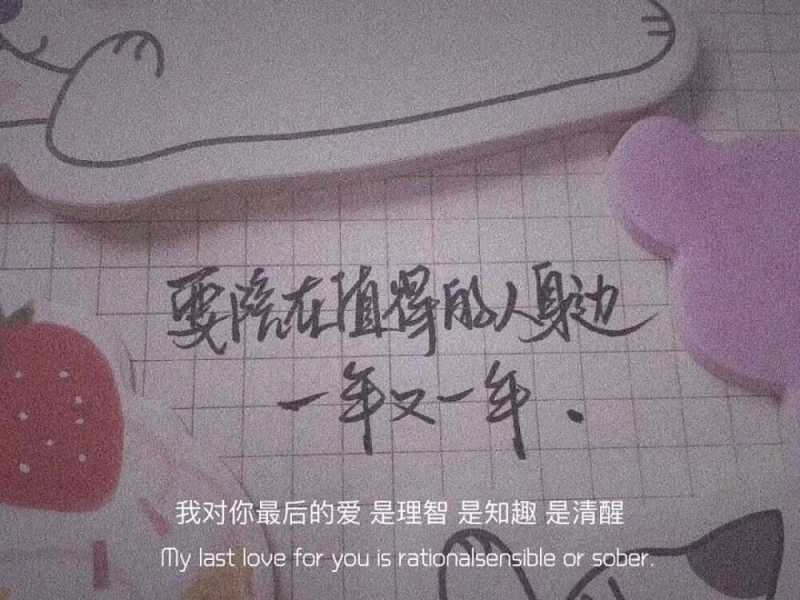 要陪在值得的人身边
一年又一年.
我对你最后的爱 是理智 是知趣 是清醒
My last love for you is rationalsensible or sober.